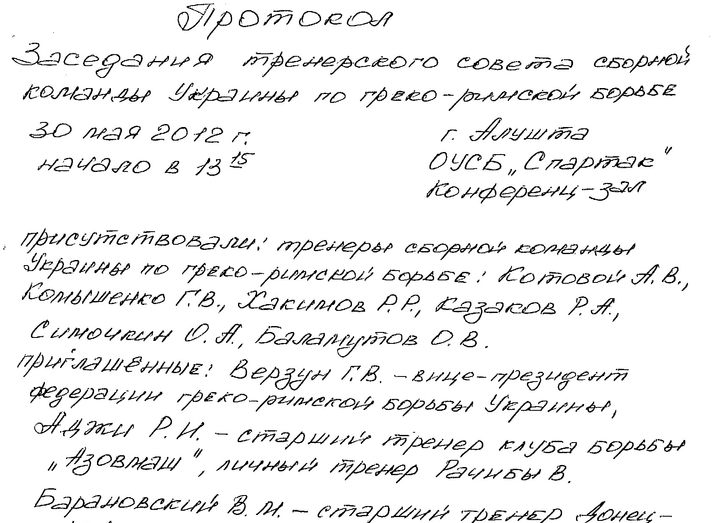 Протокол
Заседания тренерского совета сборной
команды Украины по греко-римской борьбе
30 мая 2012 г. г. Алушта
начало в 13 15 ОУСБ „Спартак"
Конференц-зал
присутствовали: тренеры сборной команды
Украины по греко-римской борьбе: Котовой А.В.,
Комышенко Г.В., Хакимов Р.Р., Казаков Р.А.,
Симочкин О.А., Баламутов О.В.
приглашённые: Верзун Г.В. – вице-президент
федерации греко-римской борьбы Украины,
Аджи Р.И. – старший тренер клуба борьбы
„Азовмаш", личный тренер Рачибы В.
Барановский В.М. – старший тренер Донец-